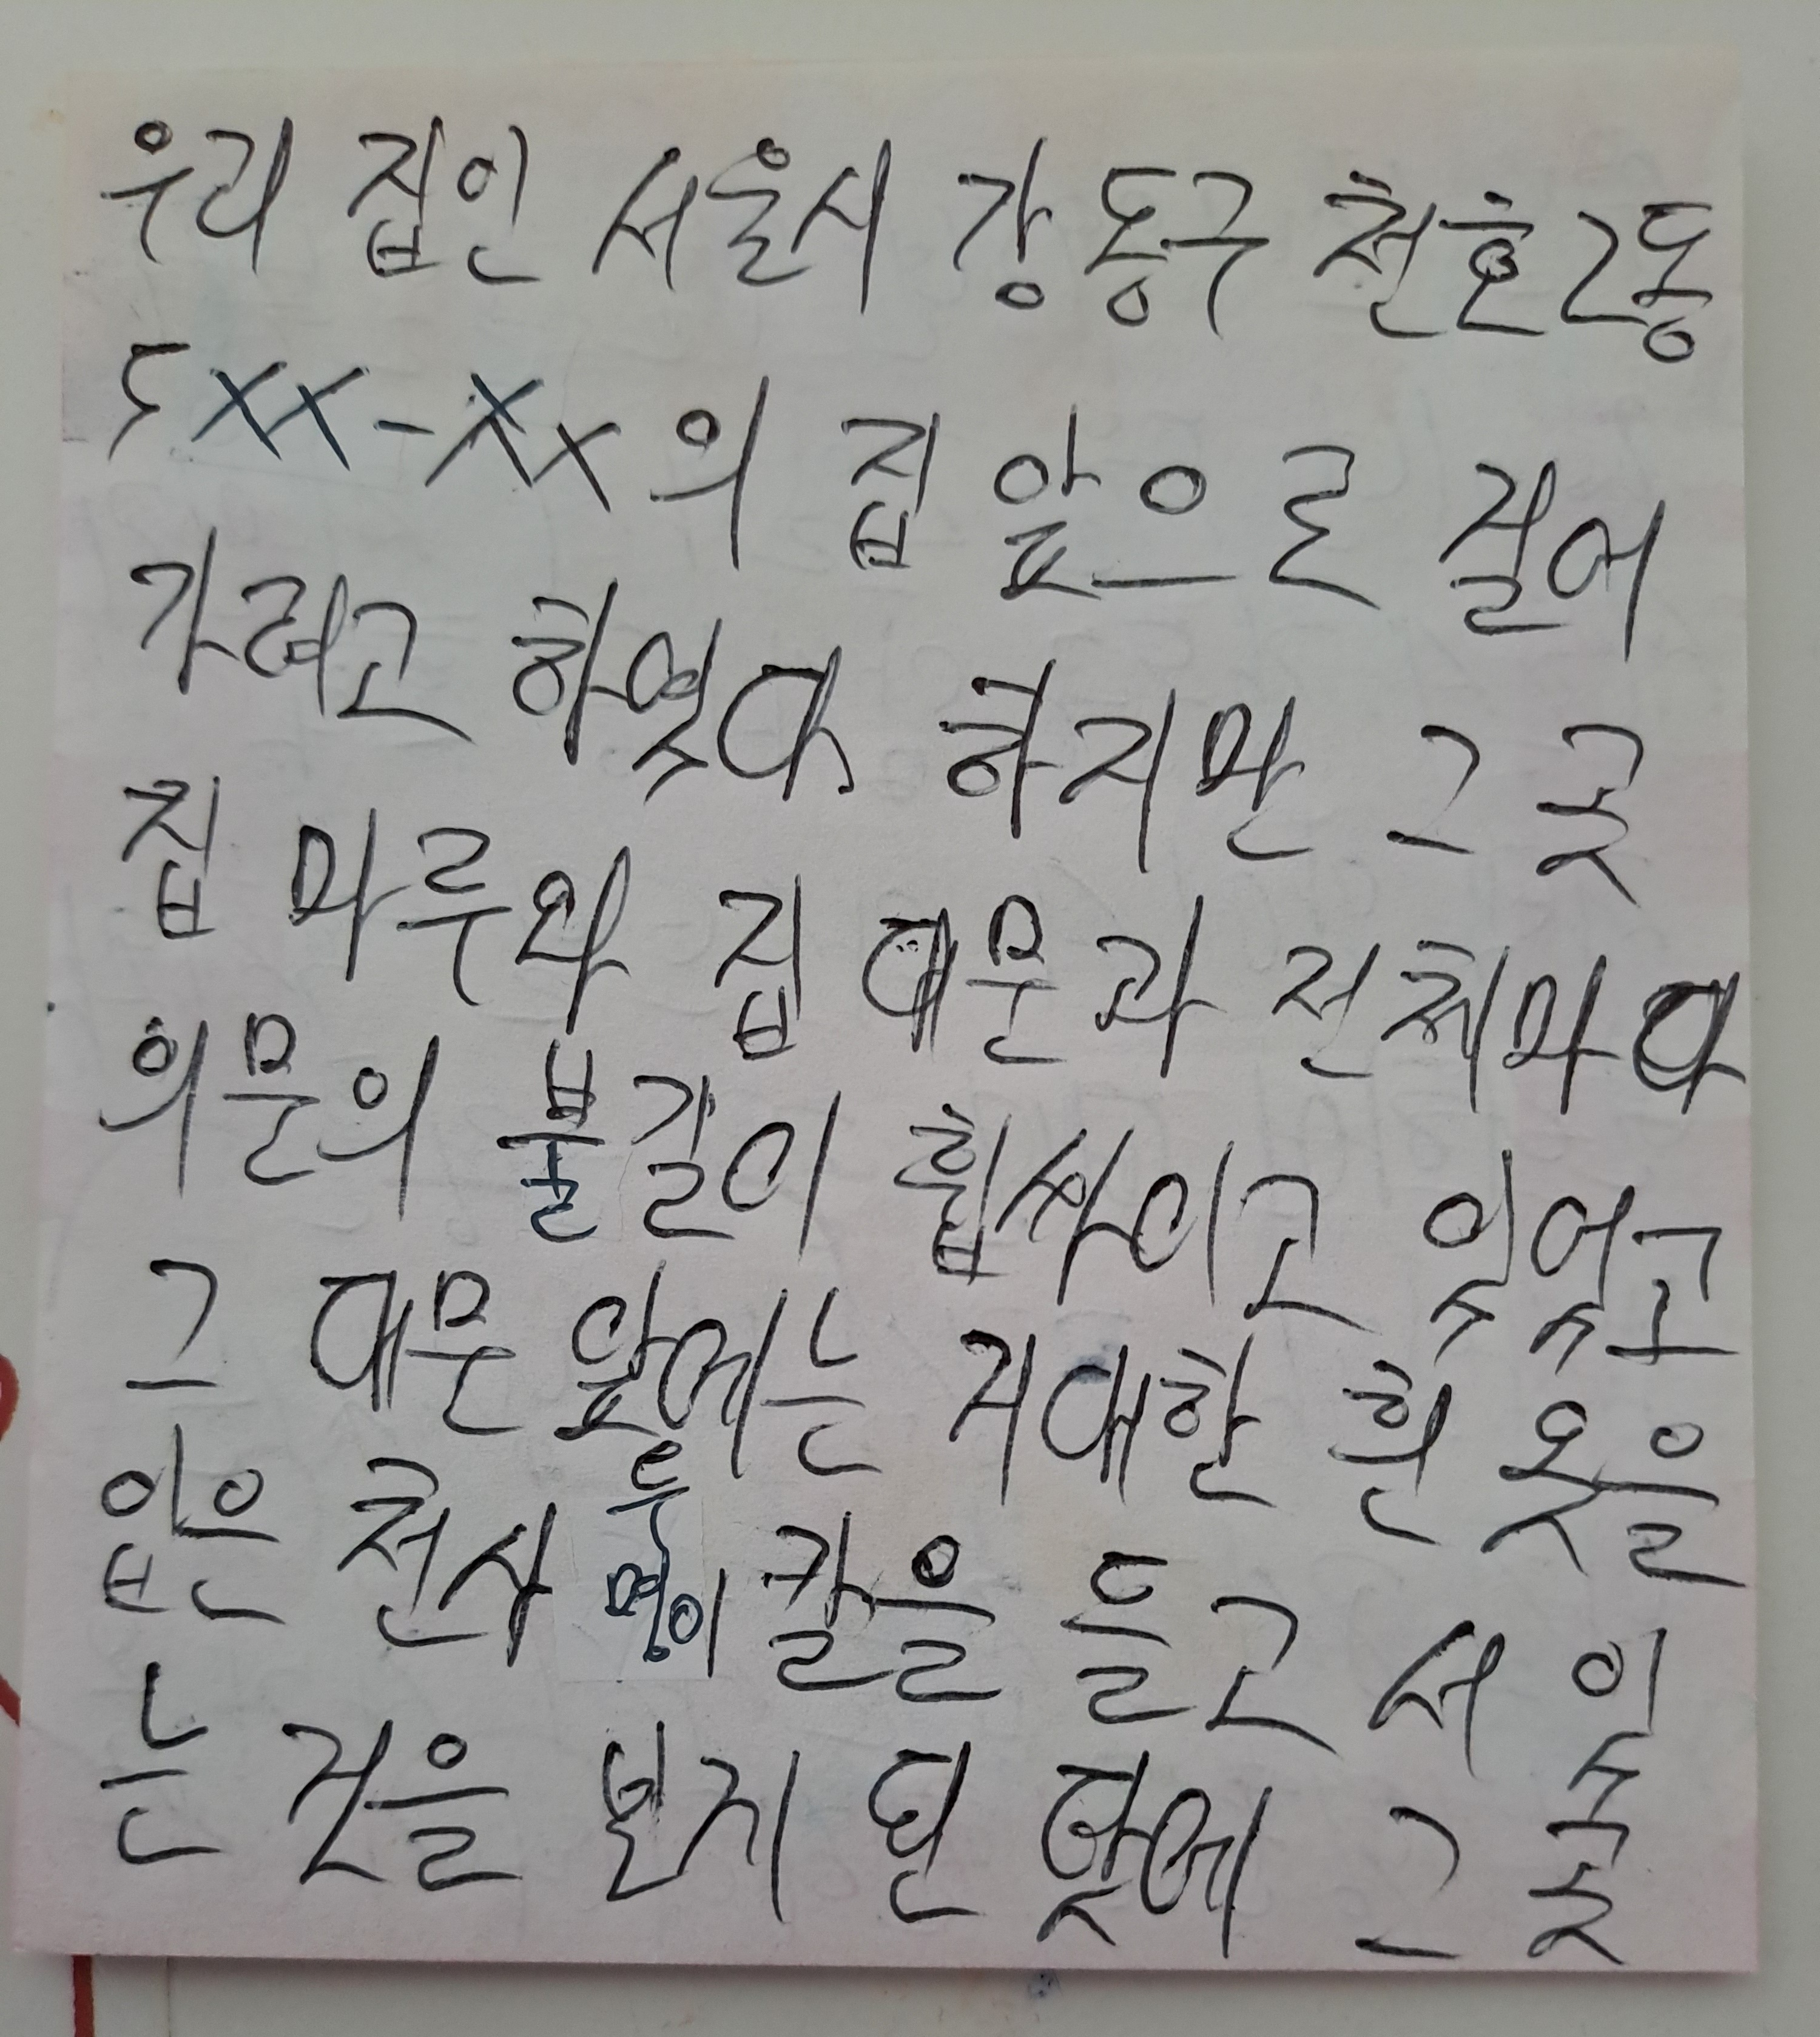 우리 집인 서울시 강동구 천호2동
5XX-XX의 집 앞으로 걸어
가려고 하였다. 하지만 그 곳
집 마루와 집 대문과 전체마다
의문의 불길이 휩싸이고 있었고
그 대문 앞에는 거대한 흰 옷을
입은 천사 두명이 칼을 들고 서 있
는 것을 본지 단 몇에 그 곳